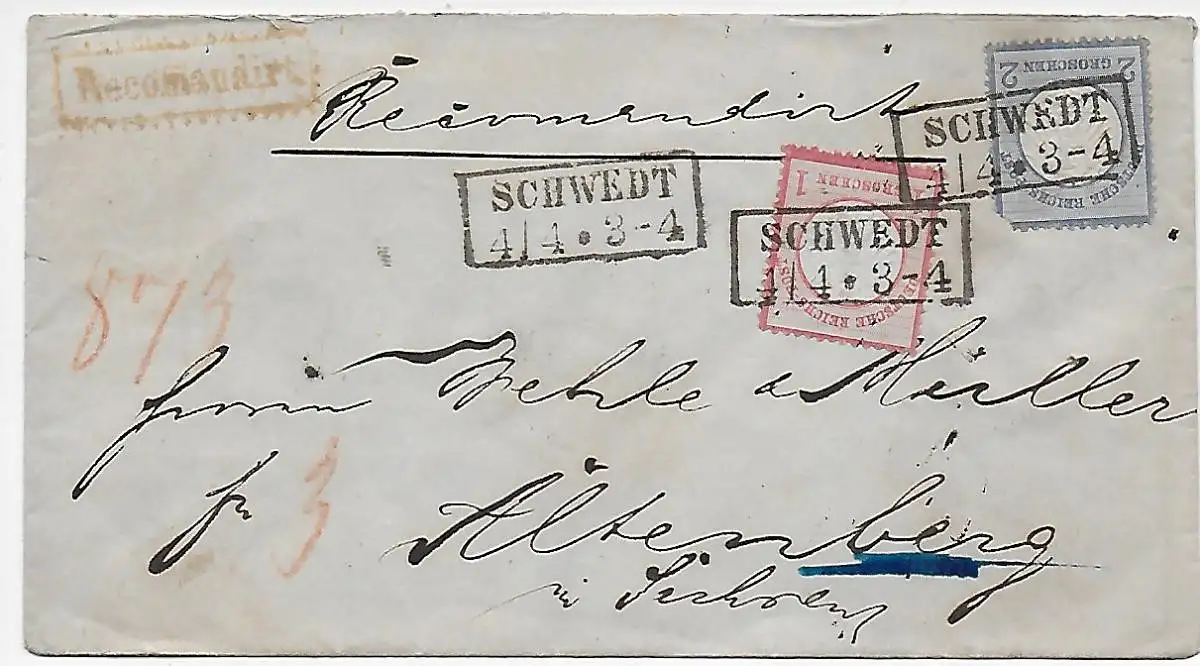 Recomandirt
Recomandirt
2 GROSCHEN 2
DEUTSCHE REICHS
SCHWEDT
4|4 • 3-4
SCHWEDT
4|4 • 3-4
1 GROSCHEN
DEUTSCHE REICHS
SCHWEDT
4|4 • 3-4
873
Herrn Wehle & Müller
3
Altenberg
in Sachsen